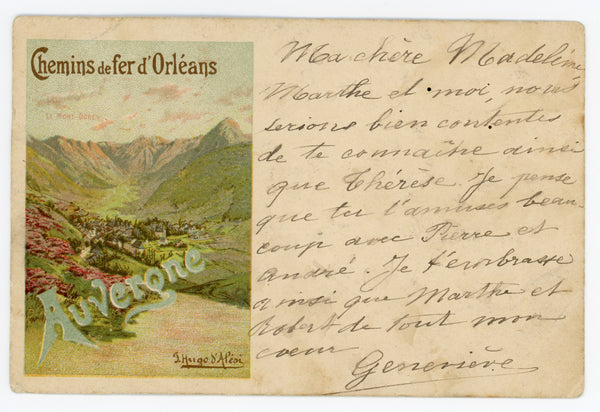 Chemins de fer d'Orléans
LE MONT-DORE
Auvergne
F. Hugo d'Alési
Ma chère Madeleine
Marthe et moi, nous
serions bien contentes
de te connaître ainsi
que Thérèse. Je pense
que tu t'amuses beau
coup avec Pierre et
andré. Je t'embrasse
ainsi que Marthe et
Robert de tout mon
coeur
Geneviève